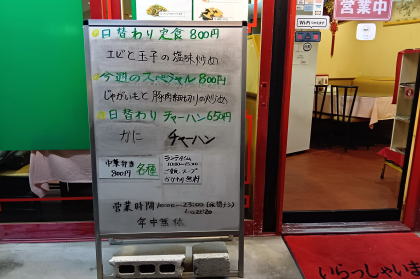 日替わり定食 800円
エビと玉子の塩味炒め
今週のスペシャル 800円
じゃがいもと豚肉細切りの炒め
日替わりチャーハン 650円
かに チャーハン
中華弁当 各種
800円
ランチタイム
ご飯、スープ
おかわり無料
営業時間
年中無休
Wi-Fi
営業中
いらっしゃいま